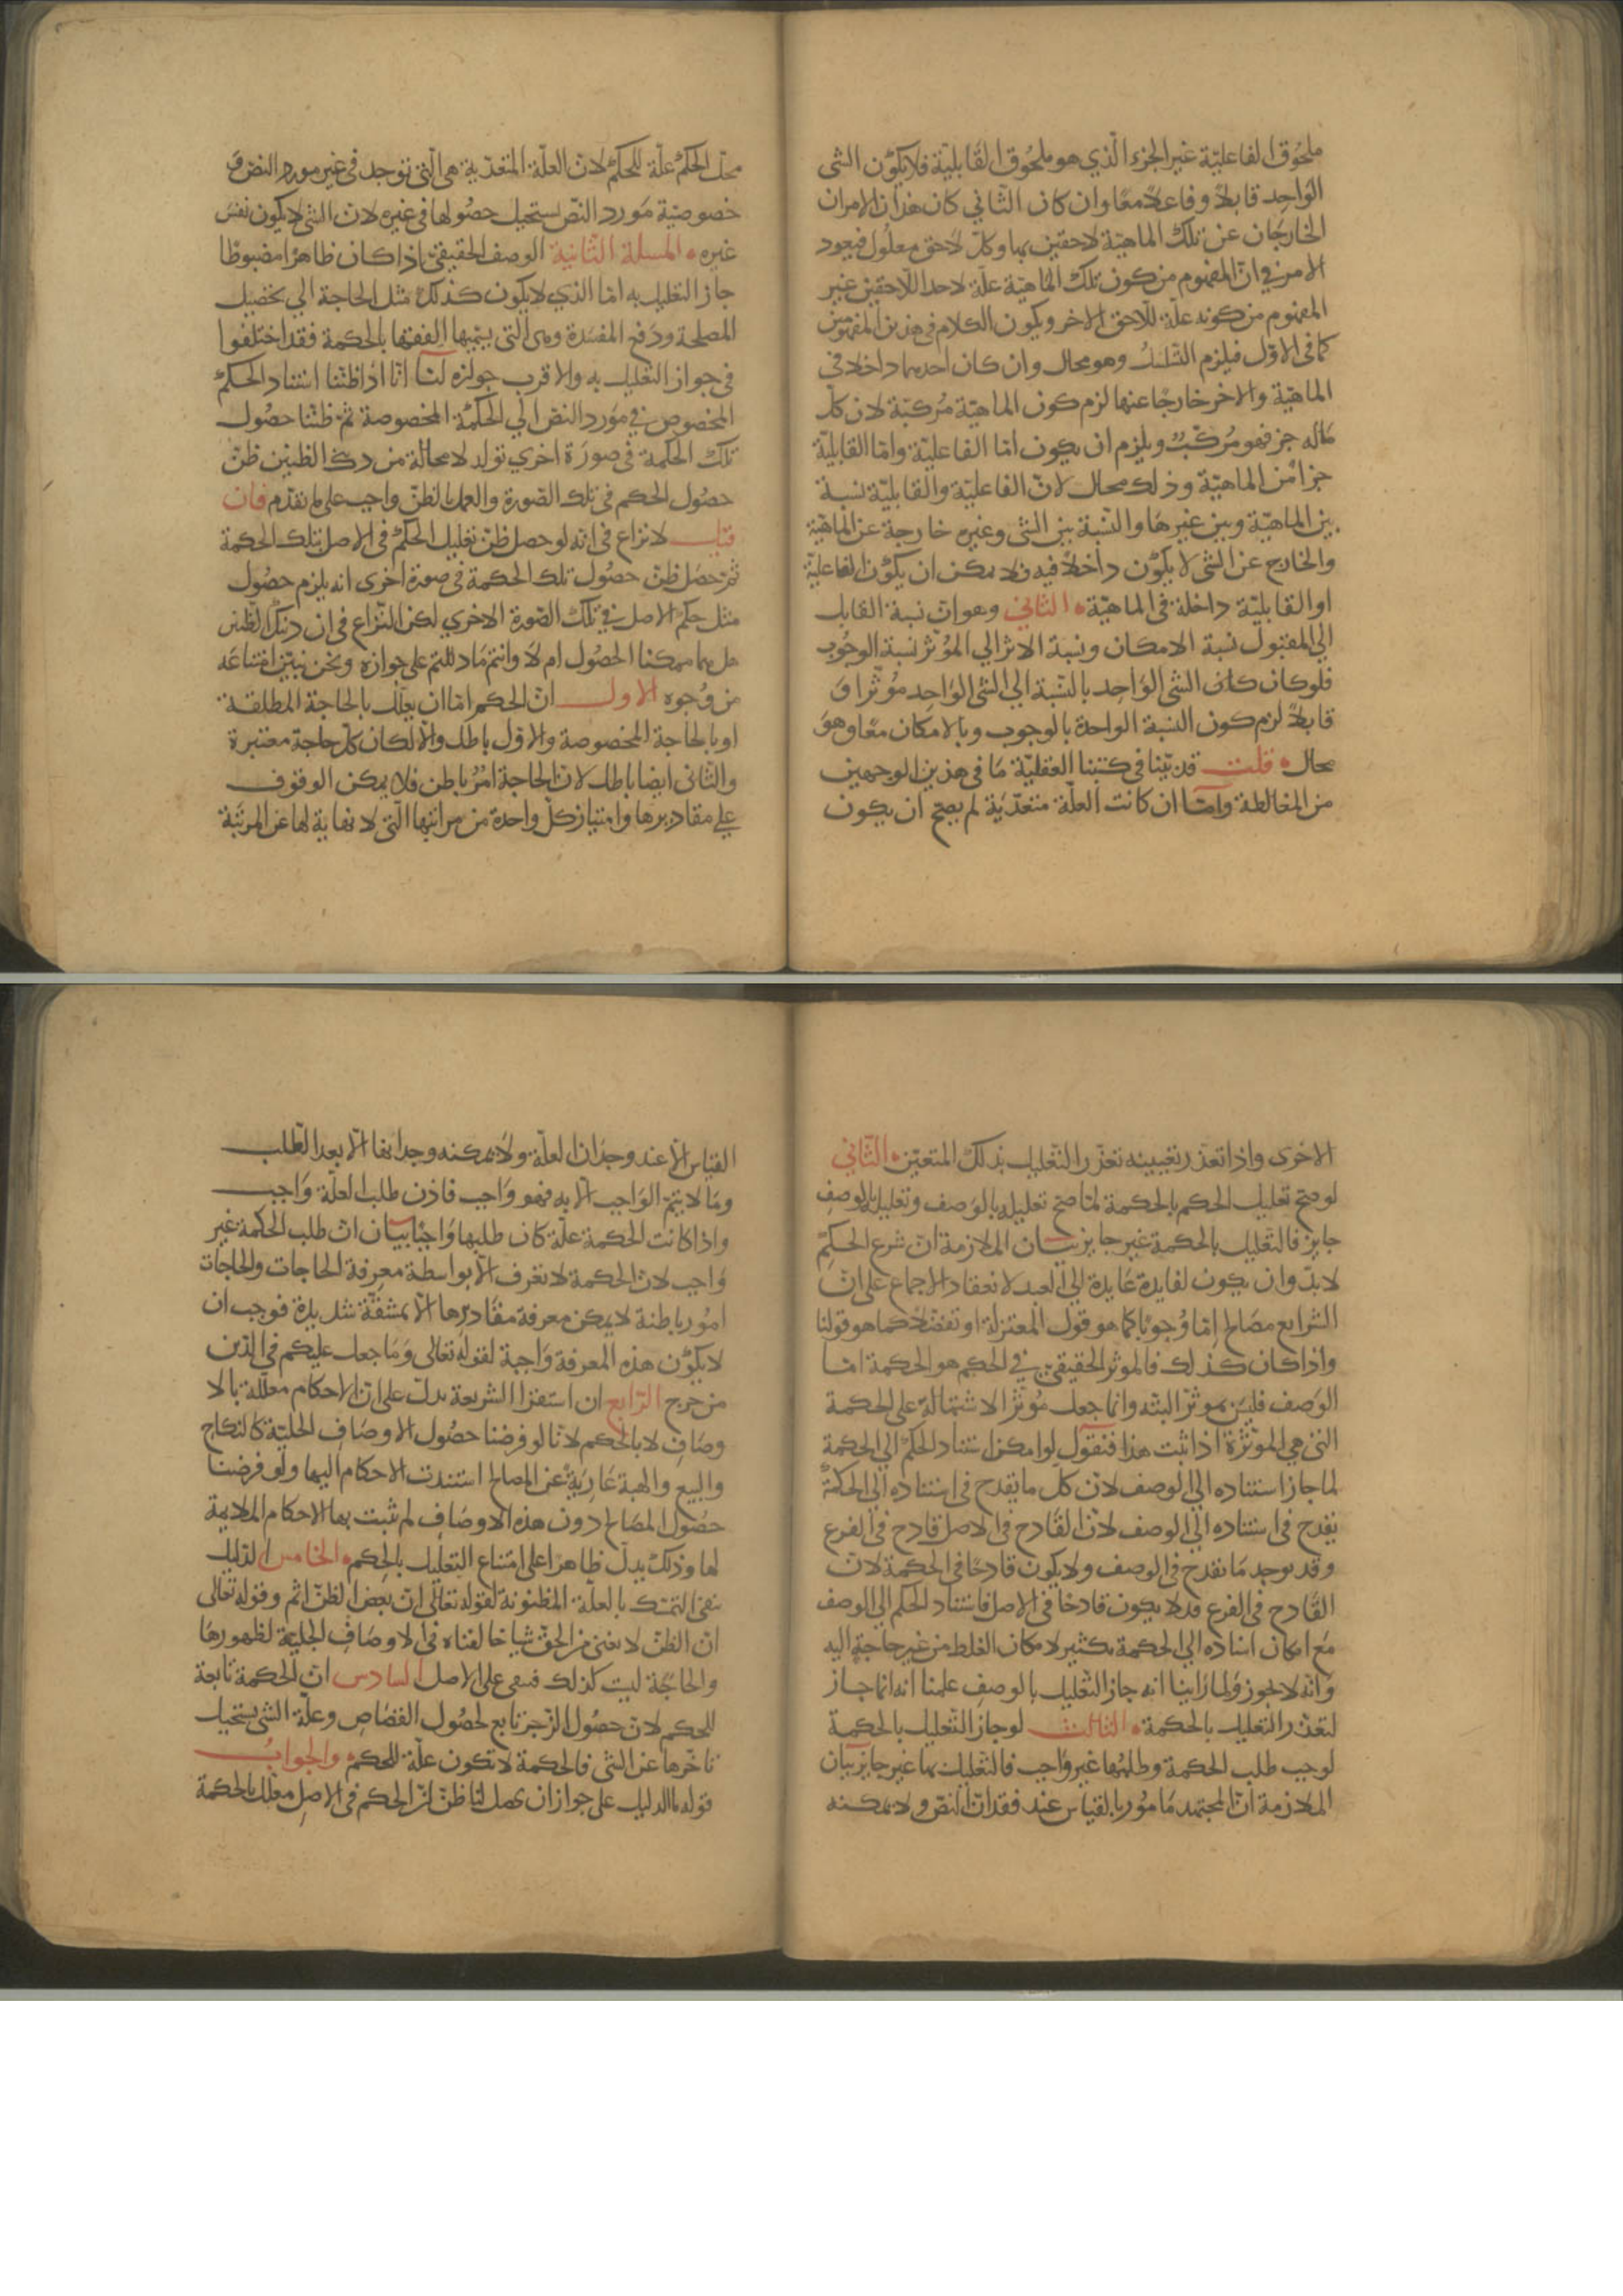 ملحُوق الفاعليّة غير الجزء الّذي هو ملحُوق القابليّة فلا يكوّن الشى
الوَاحِد قابلاً وفاعلاً معًا وان كان الثّاني كان هذان الامران
الخارجَان عن تلكَ الماهيّة لاحقين بها وكلّ لاحق معلُول فيعود
الامر في انّ المفهوم من كون تلكَ الماهيّة علّة لاحد اللّاحقين غير
المفهوم من كونه علّة للّاحق الاخر ويكون الكلام في هذين المفهومين
كما في الاوّل فيلزم التّسلسُل وهو محال وان كان احدهما داخلا في
الماهيّة والاخر خارجًا عنها لزم كون الماهيّة مُركبّة لان كلّ
مَا له جز فهو مُركّبٌ ويلزم ان يكون امّا الفاعليّة وامّا القابليّة
جزا من الماهيّة وذلك محال لانّ الفاعليّة والقابليّة نسبة
بين الماهيّة وبين غيرهَا والنّسبة بين الشى وغيره خارجة عن الماهيّة
والخارج عن الشى لا يكوّن داخلاً فيه فلا يمكن ان يكوّن الفاعليّة
او القابليّة داخلة في الماهيّة الثاني وهو انّ نسبة القابل
الي المقبُول نسبة الامكان ونسبة الاثر الي المؤثر نسبة الوجُوب
فلو كان الشى الوَاحِد بالنّسبة الي الشى الوَاحِد مُوثرًا وَ
قابلاً لزم كون النسبة الواحدة بالوجوب وبالامكان معًا وهوَ
محال قلت قد بيّنا في كتبنا العقليّة مَا في هذين الوجهين
من المغالطة وامّا ان كانت العلّة متعدّيَة لم يصح ان يكون
محلّ الحكم علّة للحكم لانّ العلّة المتعدّية هي الّتي توجد في غير مورد النصّ وَ
خصوصيّة مَورد النّص يستحيل حصُولها في غيره لانّ الشى لا يكون نفسَ
غيره المسلة الثّانية الوصف الحقيقيّ اذا كان ظاهرًا مضبوطا
جاز التعليل به امّا الذي لا يكون كذلكَ مثل الحاجة الي تحصيل
المصلحة ودَفع المفسَدة وهى الّتي يسمّيها الفقها بالحكمة فقد اختلفوا
في جواز التّعليل به والاقرب جوازه لنا انّا اذا ظننّا استناد الحكم
المخصوص في مَورد النصّ الي الحكمة المخصوصة ثمّ ظننّا حصُول
تلكَ الحكمة في صورَة اخري تولد لا محالة من ذينك الظنين ظنّ
حصُول الحكم في تلك الصّورة والعمل بالظنّ واجب على ما تقدّم فان
قيل لا نزاع في انّه لو حصل ظنّ تعليل الحكم في الاصل بتلك الحكمة
ثمّ حصَل ظنّ حصُول تلك الحكمة في صورة اخرى انه يلزم حصُول
مثل حكم الاصل في تلكَ الصّورة الاخري لكن النّزاع في ان ذينكَ الظنّين
هل هما ممكنا الحصُول ام لا وانتم مَا دللتم على جوازه ونحن نبيّن امتناعَه
من وُجوه الاول انّ الحكم امّا ان يعلّل بالحاجة المطلقة
او بالحاجة المخصوصة والاوّل باطل والّا لكان كلّ حاجة معتبرة
والثّانى ايضا باطل لانّ الحاجة امُرٌ باطن فلا يمكن الوقوف
علي مقاديرها وامتياز كلّ واحدة من مراتبها الّتي لا نهاية لها عن المرتبَة
الاخرى واذا تعذّر تعيينه تعذّر التّعليل بذلكَ المتعيّن الثّاني
لو صحّ تعليل الحكم بالحكمة لمّا صَحّ تعليله بالوَصف وتعليله بالوصف
جايز فالتّعليل بالحكمة غير جايز بيان الملازمة انّ شرع الحكم
لا بدّ وان يكون لفايدة عَايدة الي العبد لانعقاد الاجماع على انّ
الشرايع مصَالح امّا وُجوبًا كما هو قول المعتزلة او تفضّلاً كما هو قولنا
واذا كان كذلك فالموثر الحقيقيّ في الحكم هو الحكمة امّا
الوَصف فليسَ بموثّر البتّه وانما جعل مُوثّرًا لاشتماله على الحكمة
الّتي هي الموثّرة اذا ثبت هذا فنقول لو امكن استناد الحكم الي الحكمة
لما جاز استناده الي الوصف لانّ كلّ ما يقدح في استناده الي الحكمة
يقدح في استناده الي الوصف لانّ القادح في الاصل قادح في الفرع
وقد يوجد مَا يقدح في الوصف ولا يكون قادحًا في الحكمة لانّ
القادح في الفرع قد لا يكون قادحًا في الاصل فاستناد الحكم الي الوصف
مَع امكان اسناده الي الحكمة تكثير لامكان الغلط من غير حاجة اليه
وَانّه لا يجوز ولمّا رَاينا انه جاز التّعليل بالوصف علمنا انّه انما جاز
لتعذّر التعليل بالحكمة الثالث لو جاز التّعليل بالحكمة
لوجب طلب الحكمة وطلبُها غير وَاجب فالتّعليل بها غير جايز بيَان
الملازمة انّ المجتهد مَامُور بالقياس عند فقدان النصّ ولا يمكنه
القياس الّا عند وجدَان العلّة ولا يمكنه وجدانها الّا بعد الطّلب
ومَا لا يتمّ الوَاجب الّا به فهو وَاجب فاذن طلب العلّة وَاجب
واذا كانت الحكمة علّة كان طلبها وَاجبًا بيَان انّ طلب الحكمة غير
وَاجب لانّ الحكمة لا تعرف الّا بواسطة معرفة الحاجات والحاجات
امُور باطنة لا يمكن معرفة مقَاديرها الّا بمشقّة شديدة فوجب ان
لا يكوّن هذه المعرفة وَاجبة لقوله تعالى وَمَا جعل عليكم في الدّين
من حرج الرّابع ان استقرا الشريعة يدلّ على انّ الاحكام معلّلة بالا
وصَاف لا بالحكم لانّا لو فرضنا حصُول الاوصَاف الجليّة كالنكاح
والبيع والهبة عَارِيَةً عن المصالح استندت الاحكام اليها ولو فرضنا
حصُول المصَالح دون هذه الاوصَاف لم تثبت بها الاحكام الملايمة
لها وذلكَ يدلّ ظاهرا على امتناع التعليل بالحِكم الخامس الدّليل
ينفي التمسّك بالعلّة المظنونة لقوله تعالي انّ بعض الظنّ اثم وقوله تعالى
انّ الظنّ لا يغنى من الحقّ شيا خالفناه في الاوصَاف الجليّة لظهورهَا
والحاجَة ليست كذلك فتبقى على الاصل السّادس انّ الحكمة تابعة
للحكم لانّ حصُول الزّجر تابع لحصُول القصَاص وعلّة الشى يستحيل
تاخّرها عن الشى فالحكمة لا تكون علّة للحكم والجوابُ
قوله ما الدليل على جواز ان يحصل لنا ظنّ انّ الحكم في الاصل معلّل بالحكمة